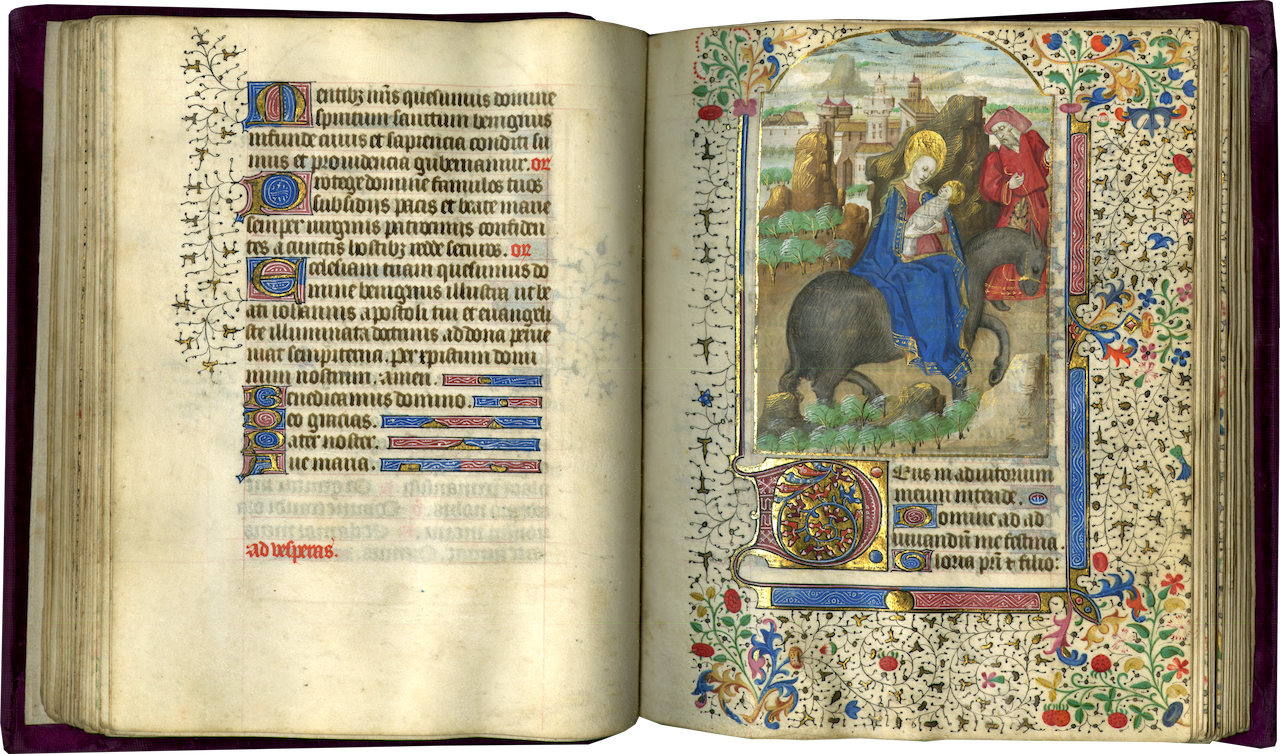 Mentibz nr̄is quesumus domine
spiritum sanctum benignus
infunde cuius et sapientia conditi su
mus et prouidencia gubernamur. or
Protege domine famulos tuos
subsidijs pacis et beate marie
semper uirginis patrocinijs confiden
tes a cunctis hostibz redde securos. or
Ecclesiam tuam quesumus do
mine benignus illustra ut be
ati iohannis apostoli tui et euangeli
ste illuminata doctrinis ad dona perue
niat sempiterna. Per xpistum domi
num nostrum. amen.
Benedicamus domino.
Deo gracias.
Pater noster.
Aue maria.
ad vesperas.
Deus in adiutorium
meum intende.
Domine ad ad
iuuandū me festina.
Gloria pr̄i & filio: